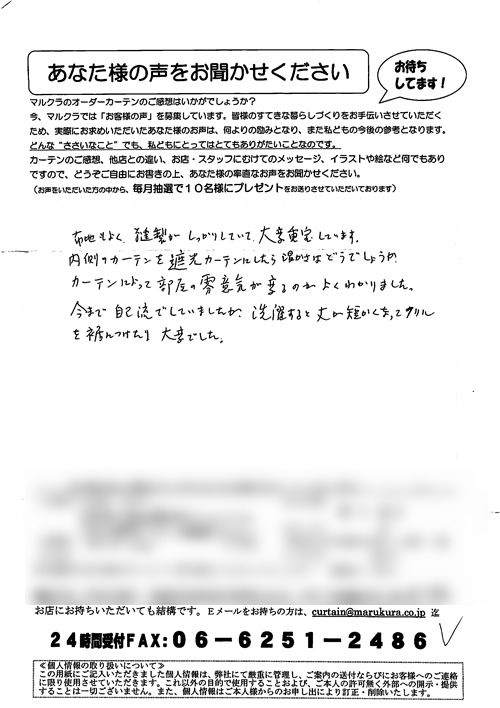 あなた様の声をお聞かせください
お待ち
してます!
マルクラのオーダーカーテンのご感想はいかがでしょうか?
今、マルクラでは「お客様の声」を募集しています。皆様のすてきな暮らしづくりをお手伝いさせていただく
ため、実際にお求めいただいたあなた様のお声は、何よりの励みとなり、また私どもの今後の参考となります。
どんな“ささいなこと”でも、私どもにとってはとてもありがたいことなのです。
カーテンのご感想、他店との違い、お店・スタッフにむけてのメッセージ、イラストや絵など何でもあり
ですので、どうぞご自由にお書きの上、あなた様の率直なお声をお聞かせください。
(お声をいただいた方の中から、毎月抽選で10名様にプレゼントをお送りさせていただいております)
布地もよく、縫製がしっかりしていて、大変重宝しています。
内側のカーテンを遮光カーテンにしたら温かさはどうでしょうか
カーテンによって部屋の雰意気が変るのがよくわかりました。
今まで自己流でしていましたが、洗濯すると丈が短かくなってフリル
を裾につけたり大変でした。
お店にお持ちいただいても結構です。Eメールをお持ちの方は、curtain@marukura.co.jp 迄
24時間受付FAX:06-6251-2486
≪個人情報の取り扱いについて≫
この用紙にご記入いただきました個人情報は、弊社にて厳重に管理し、ご案内の送付ならびにお客様へのご連絡
に限り使用させていただきます。これ以外の目的で使用することおよび、ご本人の許可無く外部への開示・提供
することは一切ございません。また、個人情報はご本人様からのお申し出により訂正・削除いたします。